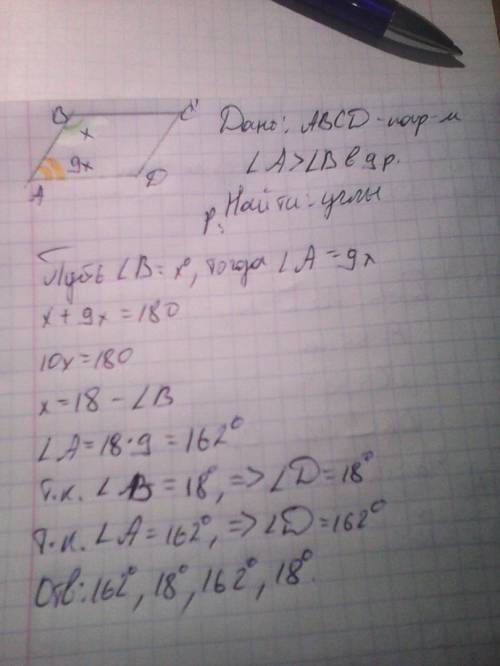 B C
x
9x
A D
Дано: ABCD - пар-м
∠A > ∠B в 9 р.
Найти: углы
Р:
Пусть ∠B = x°, тогда ∠A = 9x
x + 9x = 180
10x = 180
x = 18 - ∠B
∠A = 18·9 = 162°
т.к. ∠B = 18°, => ∠D = 18°
т.к. ∠A = 162°, => ∠D = 162°
Отв: 162°, 18°, 162°, 18°.